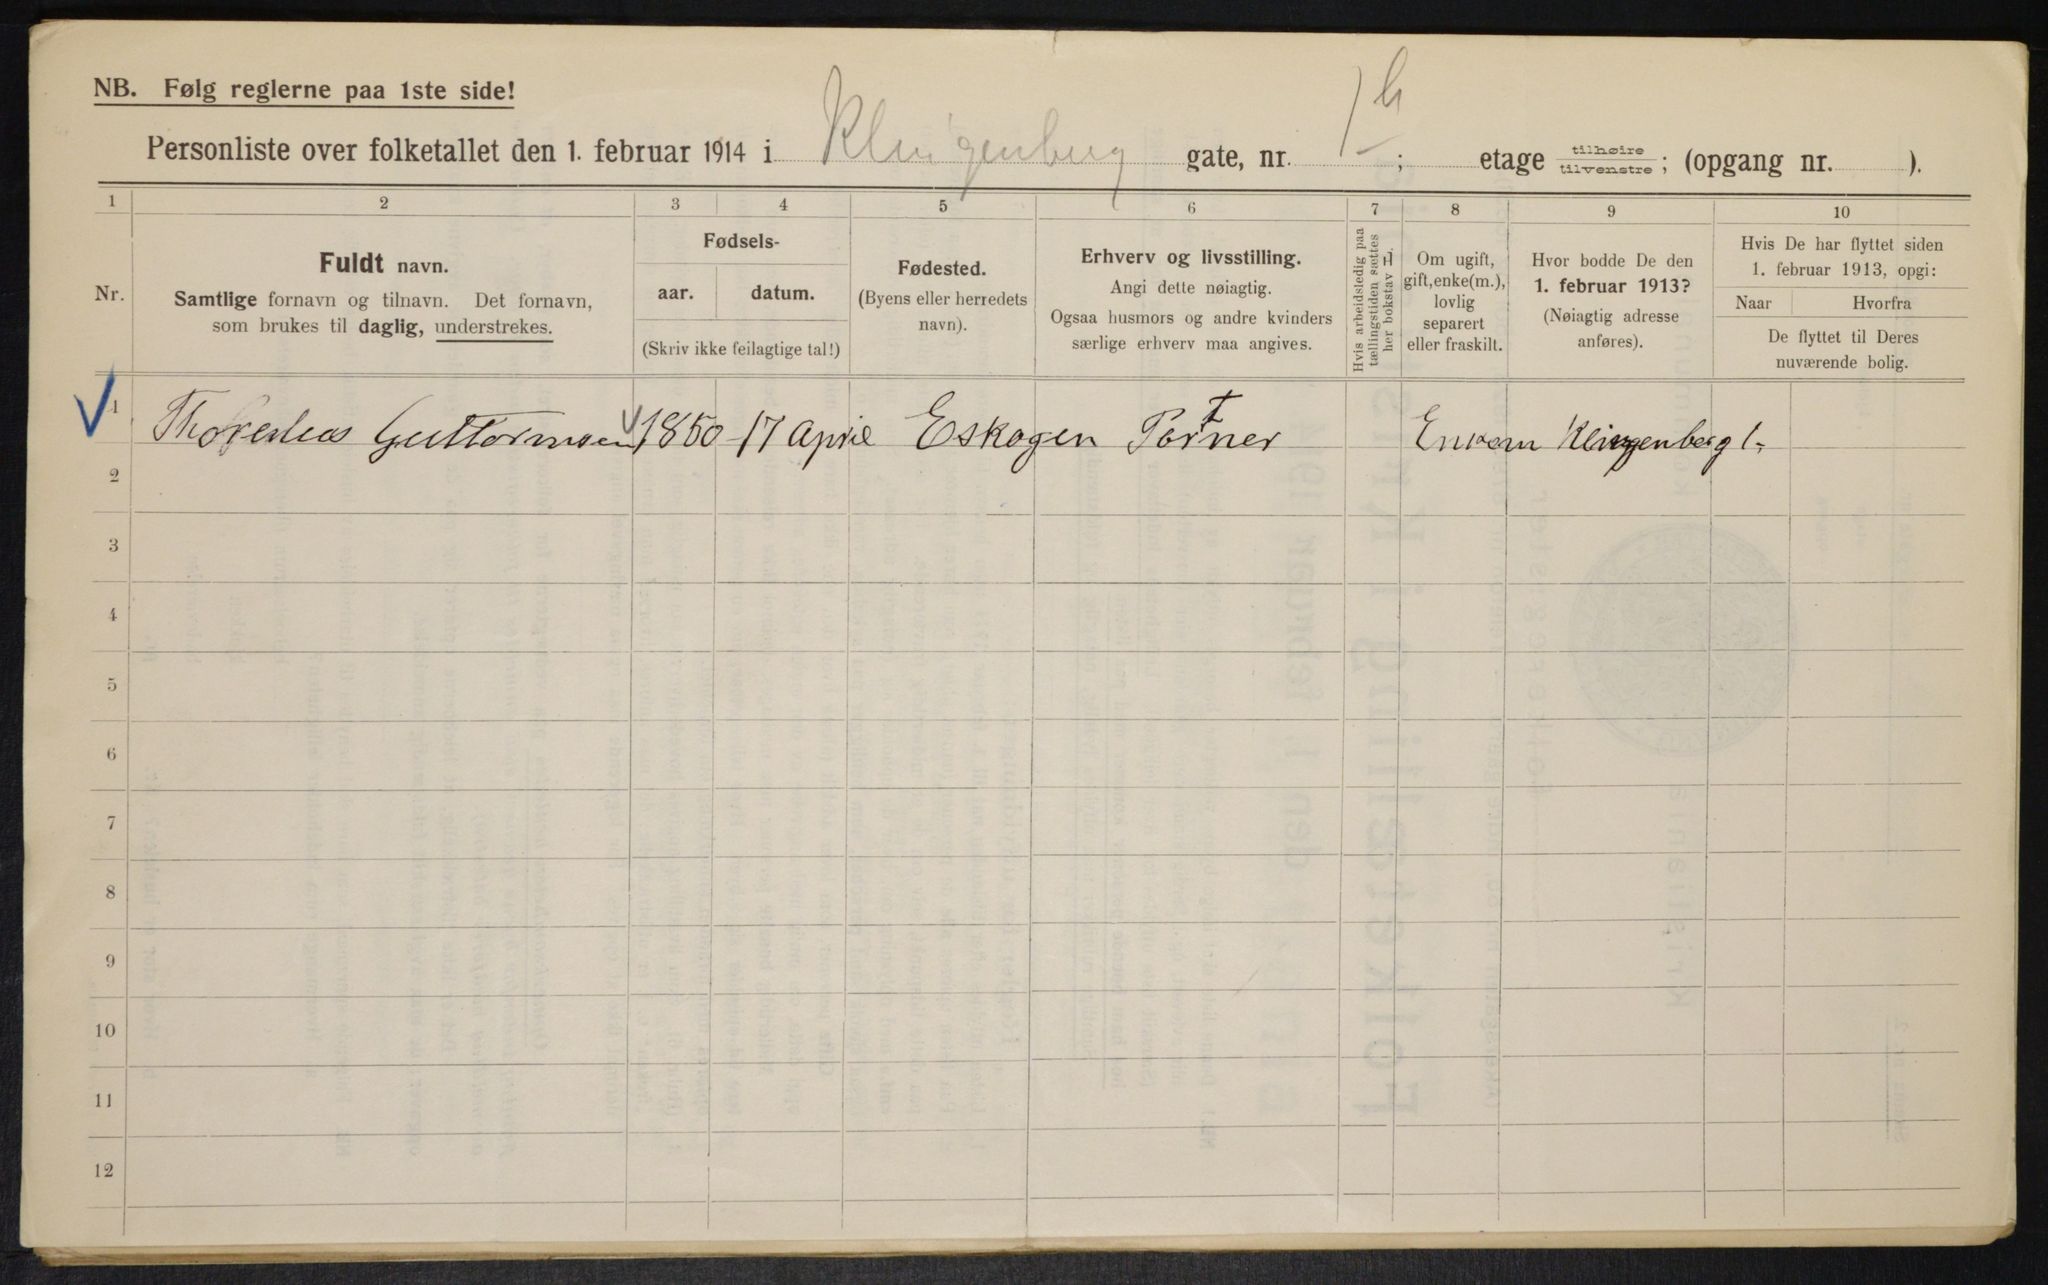 NB. Følg reglerne paa 1ste side!
Personliste over folketallet den 1. februar 1914 i Klingenberg gate, nr. 1 b; etage tilhøire/tilvenstre; (opgang nr. ).
1 2 3 4 5 6 7 8 9 10
Nr.
Fuldt navn.
Samtlige fornavn og tilnavn. Det fornavn,
som brukes til daglig, understrekes.
Fødsels-
aar. datum.
(Skriv ikke feilagtige tal!)
Fødested.
(Byens eller herredets
navn).
Erhverv og livsstilling.
Angi dette nøiagtig.
Ogsaa husmors og andre kvinders
særlige erhverv maa angives.
Hvis arbeidsledig paa
tællingstiden sættes
her bokstav L.
Om ugift,
gift, enke(m.),
lovlig
separert
eller fraskilt.
Hvor bodde De den
1. februar 1913?
(Nøiagtig adresse
anføres).
Hvis De har flyttet siden
1. februar 1913, opgi:
Naar Hvorfra
De flyttet til Deres
nuværende bolig.
1 Guttormsen 1850 17 April Eskogen Portner Klingenberg 1
2
3
4
5
6
7
8
9
10
11
12